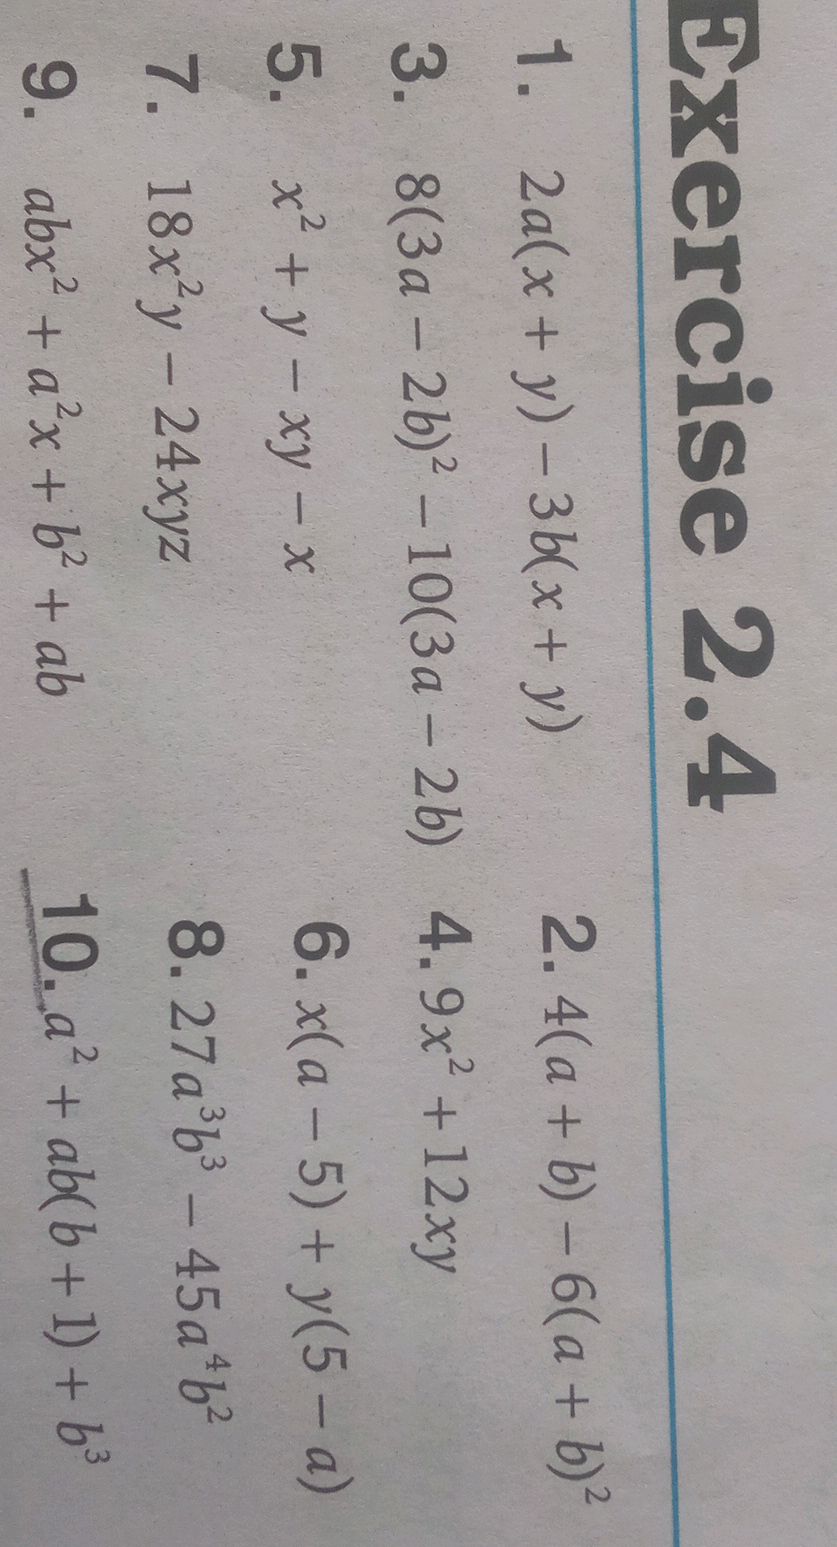 Exercise 2.4
1. 2a(x + y) – 3b(x + y) 2. 4(a + b) – 6(a + b)²
3. 8(3a – 2b)² – 10(3a – 2b) 4. 9x² + 12xy
5. x² + y – xy – x 6. x(a – 5) + y(5 – a)
7. 18x²y – 24xyz 8. 27a³b³ – 45a⁴b²
9. abx² + a²x + b² + ab 10. a² + ab(b + 1) + b³